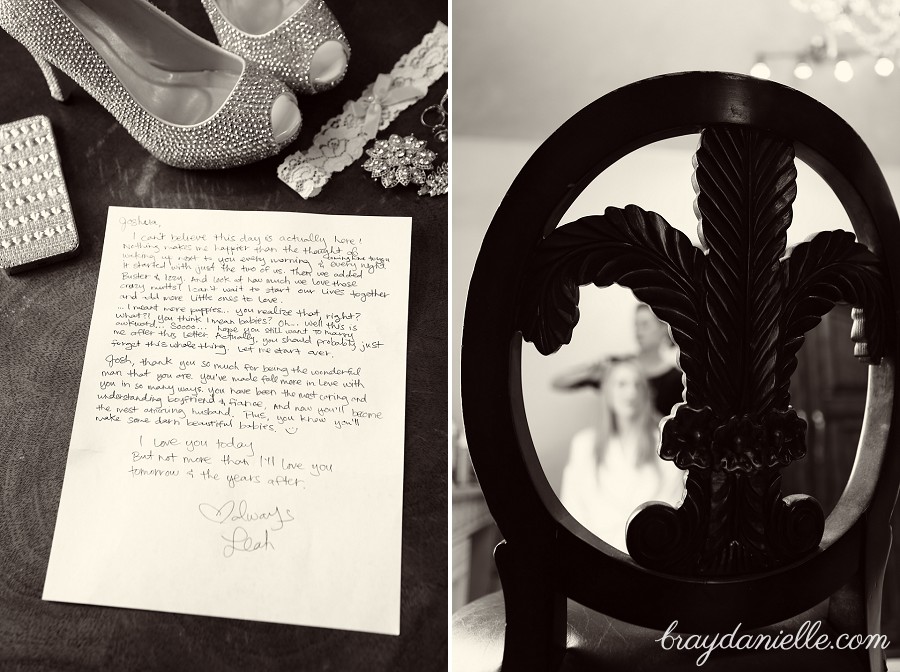 Joshua,
I can't believe this day is actually here!
Nothing makes me happier than the thought of
waking up next to you every morning & coming home to you every night.
It started with just the two of us. Then we added
Buster & Izzy. And look at how much we love those
crazy mutts! I can't wait to start our lives together
and add more little ones to love.
... I meant more puppies... you realize that, right?
What?! you think I mean babies? Oh... well this is
awkward... Soooo... hope you still want to marry
me after this letter. Actually, you should probably just
forget this whole thing. Let me start over.
Josh, thank you so much for being the wonderful
man that you are. you've made fall more in love with
you in so many ways. you have been the most caring and
understanding boyfriend & fiance. And now you'll become
the most amazing husband. Plus, you know you'll
make some darn beautiful babies.
I love you today
But not more than I'll love you
tomorrow & the years after.
always
Leah
braydanielle.com